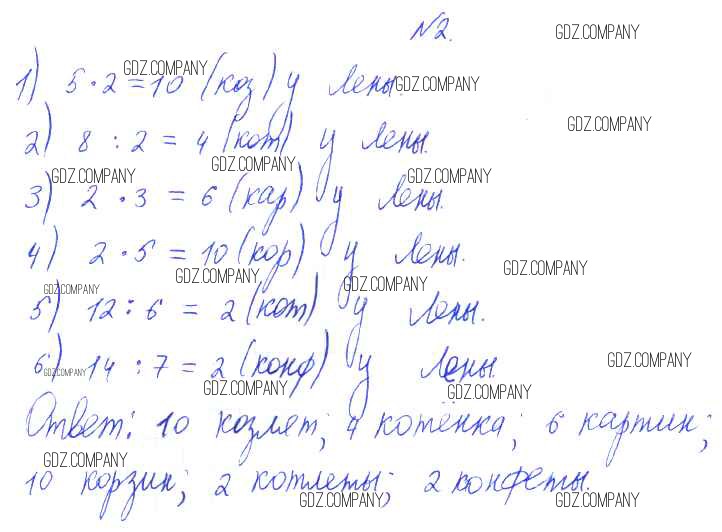 №2.
GDZ.COMPANY
1) 5 · 2 = 10 (коз) у Лены.
GDZ.COMPANY
GDZ.COMPANY
GDZ.COMPANY
2) 8 : 2 = 4 (кот) у Лены.
GDZ.COMPANY
GDZ.COMPANY
GDZ.COMPANY
3) 2 · 3 = 6 (кар) у Лены.
4) 2 · 5 = 10 (кор) у Лены.
GDZ.COMPANY
GDZ.COMPANY
GDZ.COMPANY
GDZ.COMPANY
5) 12 : 6 = 2 (кот) у Лены.
GDZ.COMPANY
6) 14 : 7 = 2 (конф) у Лены.
GDZ.COMPANY
GDZ.COMPANY
GDZ.COMPANY
Ответ: 10 козлят; 4 котёнка; 6 картин;
GDZ.COMPANY
10 корзин; 2 котлеты; 2 конфеты.
GDZ.COMPANY
GDZ.COMPANY